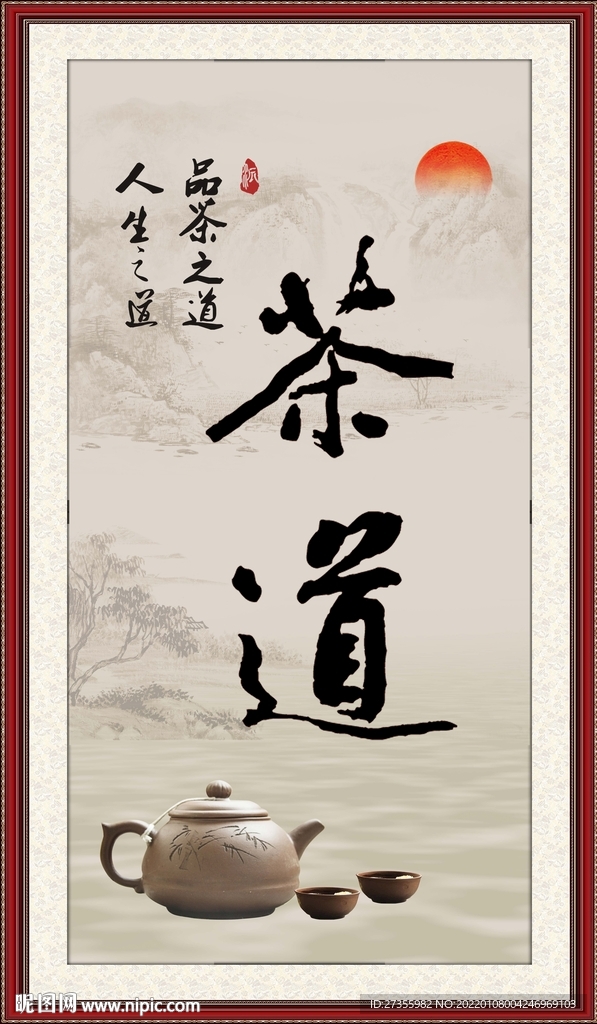 茶道
品茶之道
人生之道
昵图网 www.nipic.com
ID:27355982 NO:20220108004246969103